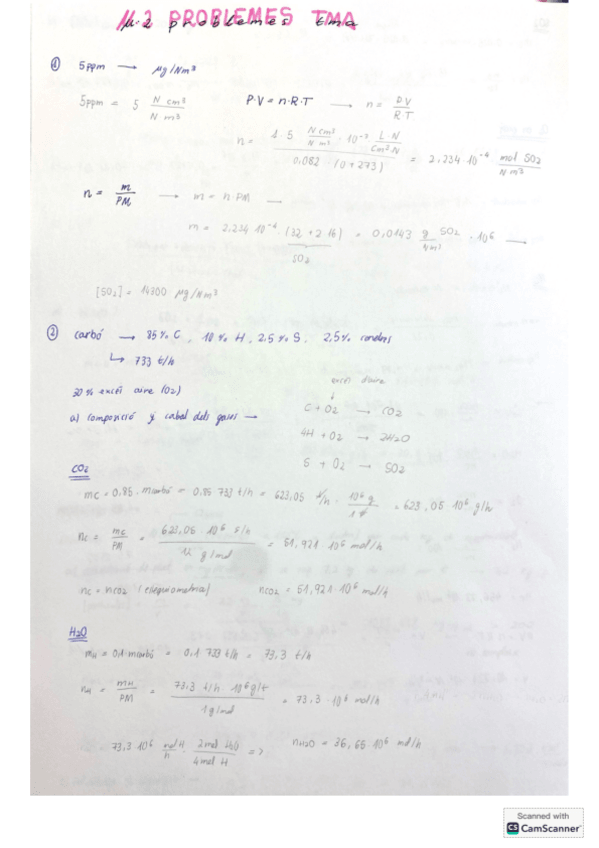 U.2 PROBLEMES TMA
U.2 problemes tma
① 5ppm → µg/Nm³
5ppm = 5 N cm³ / N m³    P·V = n·R·T → n = P·V / R·T
n = 1·5 N cm³ / N m³ · 10⁻³ L N / cm³ N / 0,082 · (0+273) = 2,234·10⁻⁴ mol SO₂ / N m³
n = m / PM → m = n·PM →
m = 2,234·10⁻⁴ (32 + 2·16) = 0,0143 g SO₂ / Nm³ · 10⁶ →
SO₂
[SO₂] = 14300 µg/Nm³
② carbó → 85% C, 10% H, 2,5% S, 2,5% cendres
↳ 733 t/h
30% excés aire (O₂)
excés d'aire
↓
a) composició y cabal dels gases →
C + O₂ → CO₂
4H + O₂ → 2H₂O
S + O₂ → SO₂
CO₂
mc = 0,85 · mcarbó = 0,85 · 733 t/h = 623,05 t/h · 10⁶ g / 1 t = 623,05·10⁶ g/h
nc = mc / PM = 623,05·10⁶ g/h / 12 g/mol = 51,921·10⁶ mol/h
nc = nco₂ (estequiometria)    nco₂ = 51,921·10⁶ mol/h
H₂O
mH = 0,1·mcarbó = 0,1·733 t/h = 73,3 t/h
nH = mH / PM = 73,3 t/h · 10⁶ g/t / 1 g/mol = 73,3·10⁶ mol/h
73,3·10⁶ mol H / h · 2mol H₂O / 4mol H =>    nH₂O = 36,65·10⁶ mol/h
Scanned with
CS CamScanner